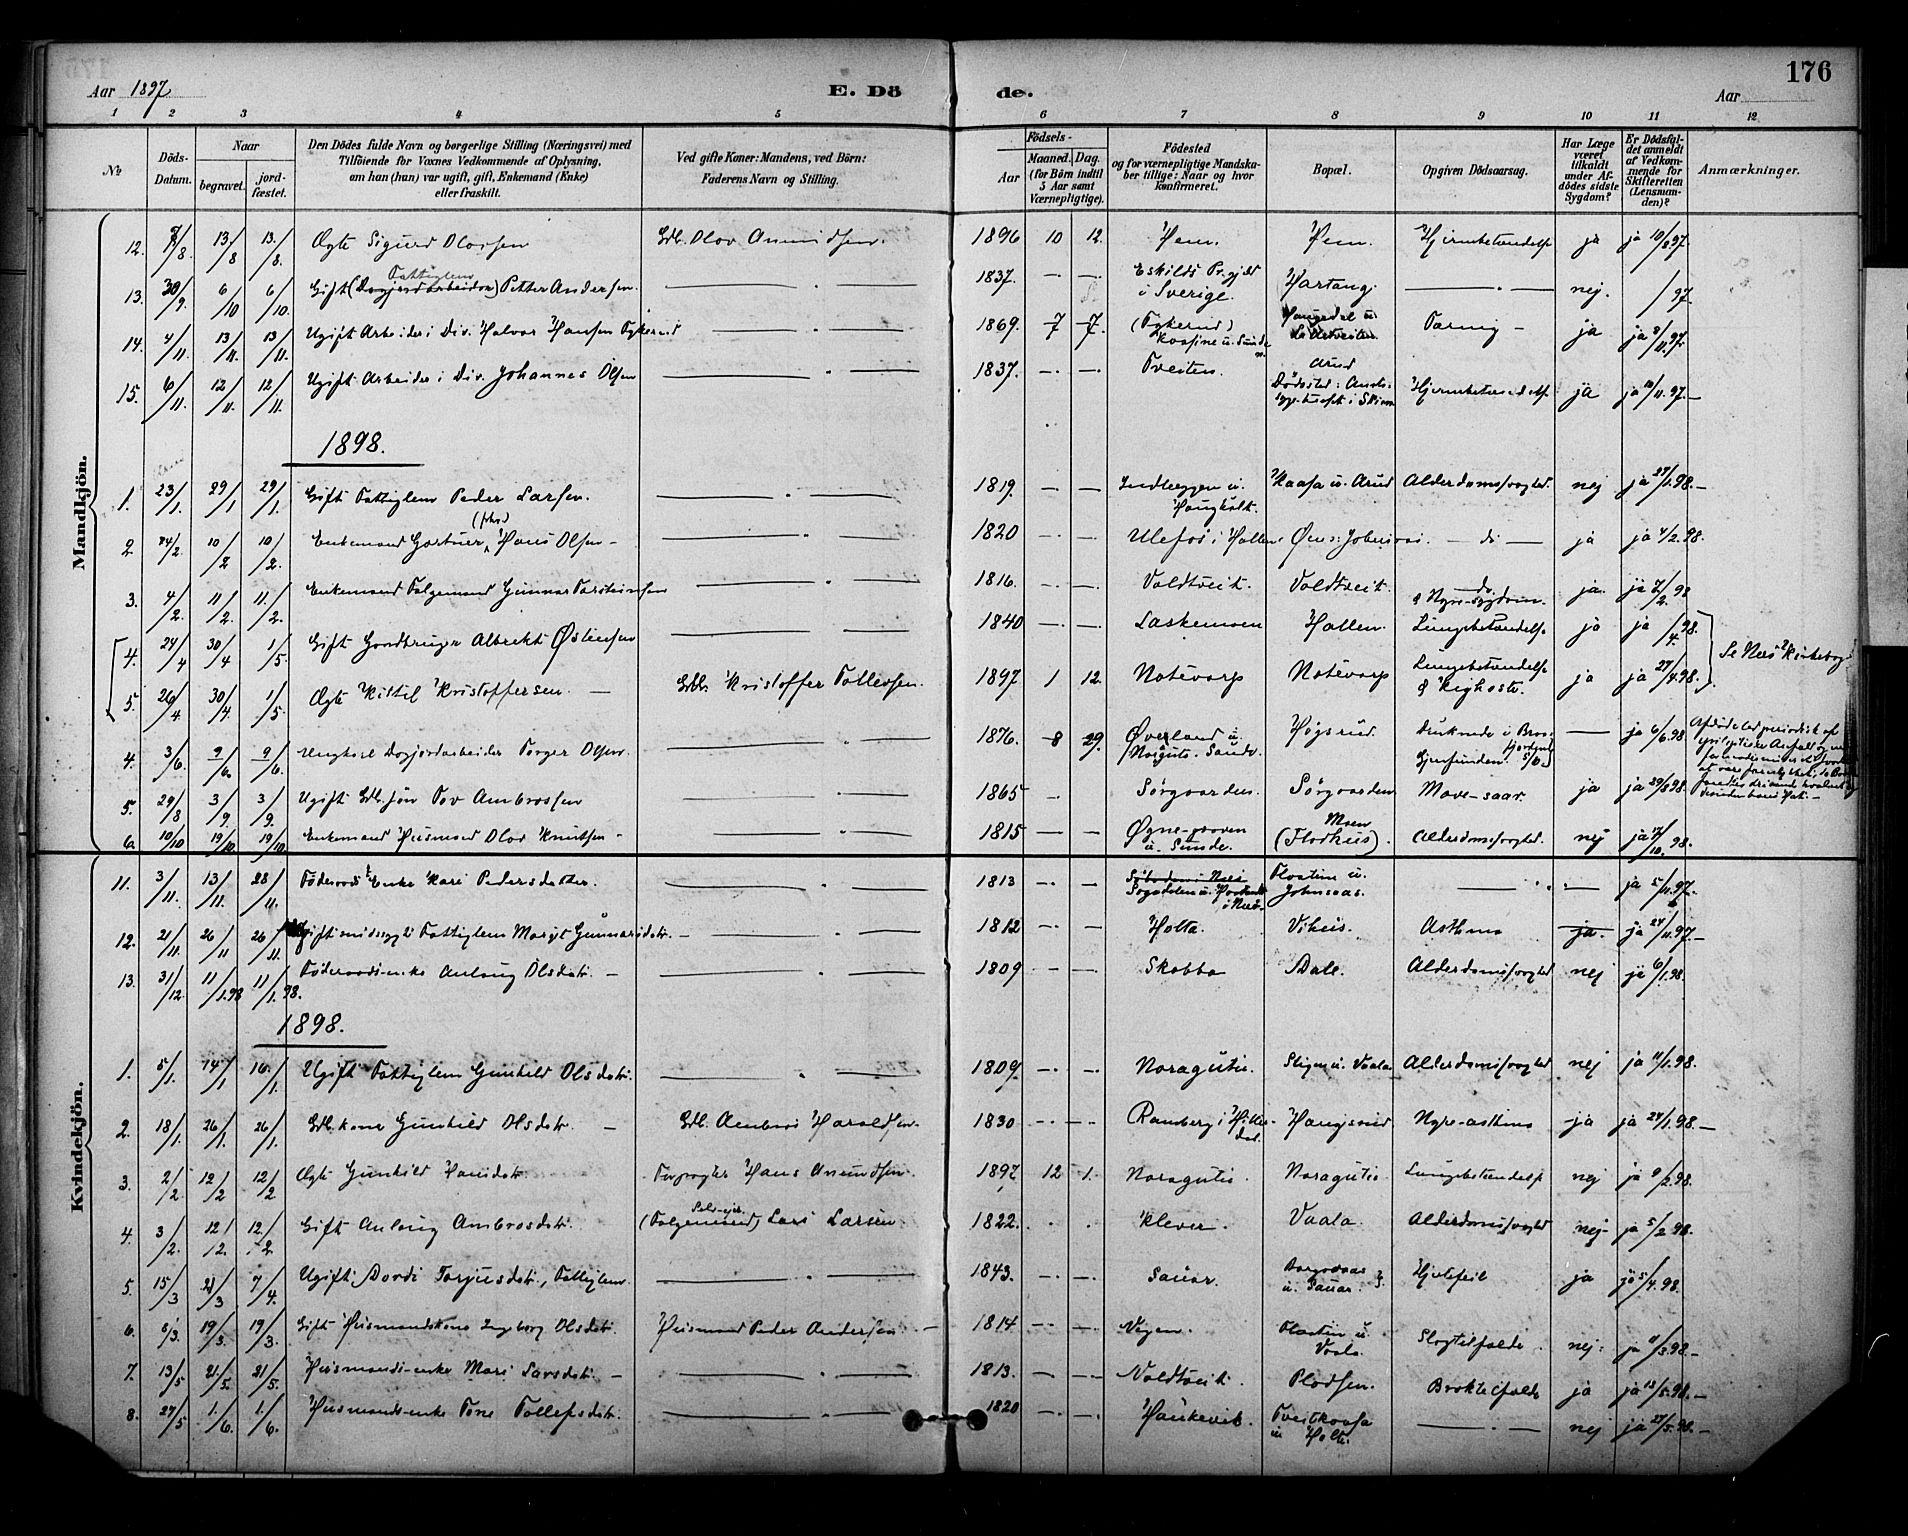 Aar 1897
E. Dö
de.
Aar
176
1 2 3 4 5 6 7 8 9 10 11 12
No
Döds-Datum.
Naar
begravet.
jord-fæstet.
Den Dödes fulde Navn og borgerlige Stilling (Næringsvei) med
Tilföiende for Voxnes Vedkommende af Oplysning,
om han (hun) var ugift, gift, Enkemand (Enke)
eller fraskilt.
Ved gifte Koner: Mandens, ved Börn:
Faderens Navn og Stilling.
Födsels-
Aar
Maaned. Dag.
(for Börn indtil
5 Aar samt
Værnepligtige).
Födested
og for værnepligtige Mandska-
ber tillige: Naar og hvor
konfirmeret.
Bopæl.
Opgiven Dödsaarsag.
Har Læge
været
tilkaldt
under Af-
dödes sidste
Sygdom?
Er Dödsfal-
det anmeldt
af Vedkom-
mende for
Skifteretten
(Lensman-
den)?
Anmærkninger.
Mandkjön.
12. 13/8 13/8 Ægte Sigurd Olavsen Gdb. Olav 1896 10 12. Hem. Hem. ja ja 10/8 97.
13. 30/9 6/10 6/10 Gift (Dagjordarbeider) Fattiglem Petter Andersen. 1837. Eskilds Pr.gjeld i Sverige. nej. /97.
14. 4/11. 13/11. 13/11. Ugift Arbeider i Div. Halvor Hansen 1869. 7 7. Tæring ja ja 8/11 97.
15. 6/11. 12/11. 12/11. Ugift Arbeider i Div. Johannes Olsen 1837. Tveiten. Arud Dödssted: i Skien Hjernebetændelse ja ja 10/11. 97.
1898.
1. 23/1. 29/1 29/1. Gift Fattiglem Peder Larsen. 1819. u. Haugholt. Kaasa u. Arud Alderdomssvaghed nej ja 27/1. 98.
2. 10/2 10/2. Enkemand Gartner (forhv.) Hans Olsen 1820 Ulefos i Hollen. do ja ja 4/2. 98.
3. 4/2. 11/2. 11/2. Enkemand Folgemand Gunnar Torsteinsen 1816. Valdtveit. Valdtveit. do & Nyre-sygdom. ja. ja 7/2. 98
4. 24/4 30/4 1/5. Gift Gaardbruger Albrekt Østensen 1840 Laskemoen Hollen. Lungebetændelse ja ja /4. 98. Se Næs's Kirkebog
5. 26/4. 30/4. 1/5 Ægte Kittil Kristoffersen. Gdb. Kristoffer Tollevsen. 1897. 1 12. Notevarp Notevarp Lungebetændelse & Kighoste. ja ja 27/4 98.
4. 3/6. 9/6. 9/6. Ungkarl Dagjordarbeider Torger Olsen. 1876. 8 29. Øverland u. Saude. Høgsrud. Druknede i ja 6/6. 98.
5. 29/8 3/9. 3/9. Ugift Gdb.sön Tov Ambrossen 1865 Sørgaarden. Sørgaarden Mave-saar. ja ja 98.
6. 10/10 19/10. 19/10. Enkemand Husmand Olav Knutsen 1815 u. Sunde. Moen (Flodhus). Alderdomssvaghed. nej ja 98.
Kvindekjön.
11. 3/11. 13/11. 28/11. Föderaads Enke Kari Pedersdatter. 1813 Johnsaas. ja 5/11. 97.
12. 21/11. 26/11 26/11. Fattiglem Margit Gunnarsdatr. 1812 Holta. Vihus. Asthma ja. ja 24/11. 97.
13. 31/12. 11/1. 98 11/1. 98. Föderaads-enke Anlaug Olsdatr. 1809 Skobba Dale. Alderdomssvaghed nej ja 6/1. 98.
1898.
1. 5/1. 14/1 16/1. Ugift Fattiglem Gunhild Olsdatr. 1809. Noragutu. u. Vaala Alderdomssvaghed nej ja 11/1. 98.
2. 18/1. 26/1. 26/1. Gdb.kone Gunhild Olsdatr. Gdb. Ambros Haraldsen. 1830 Ramberg i Hitterdal. Nyre-asthma ja ja 24/1. 98.
3. 2/2. 12/2 12/2 Ægte Gunhild Hansdatr. Forpagter Hans Amundsen. 1897 12 1. Noragutu. Noragutu. Lungebetændelse nej ja 9/2. 98.
4. 3/2. 12/2. 12/2. Gift Anlaug Ambrosdatr. (Folgemand) Selv-eier Lars Larsen. 1822. Klever. Vaala. Alderdomssvaghed nej ja 5/2 98.
5. 15/3 21/3 7/4. Ugift Dordi Torjusdatr, Fattiglem. 1843. Sauar. u. Sauar. Hjertefeil ja ja 5/4. 98.
6. 5/3. 19/3. 19/3. Gift Husmandskone Ingeborg Olsdatr. Husmand Peder Andersen. 1814 Vegen. u. Vaala. Slagtilfælde. nej. ja 11/3. 98.
7. 13/5 21/5. 21/5. Husmands-enke Mari Larsdatr. 1813. Valdtveit. Plassen. Broktilfælde ja ja 18/5. 98.
8. 27/5 1/6. 1/6. Husmands-enke Tone Tollefsdatr. 1820 Haukevik. Tveitkaasa u. Holta. nej ja 27/5. 98.